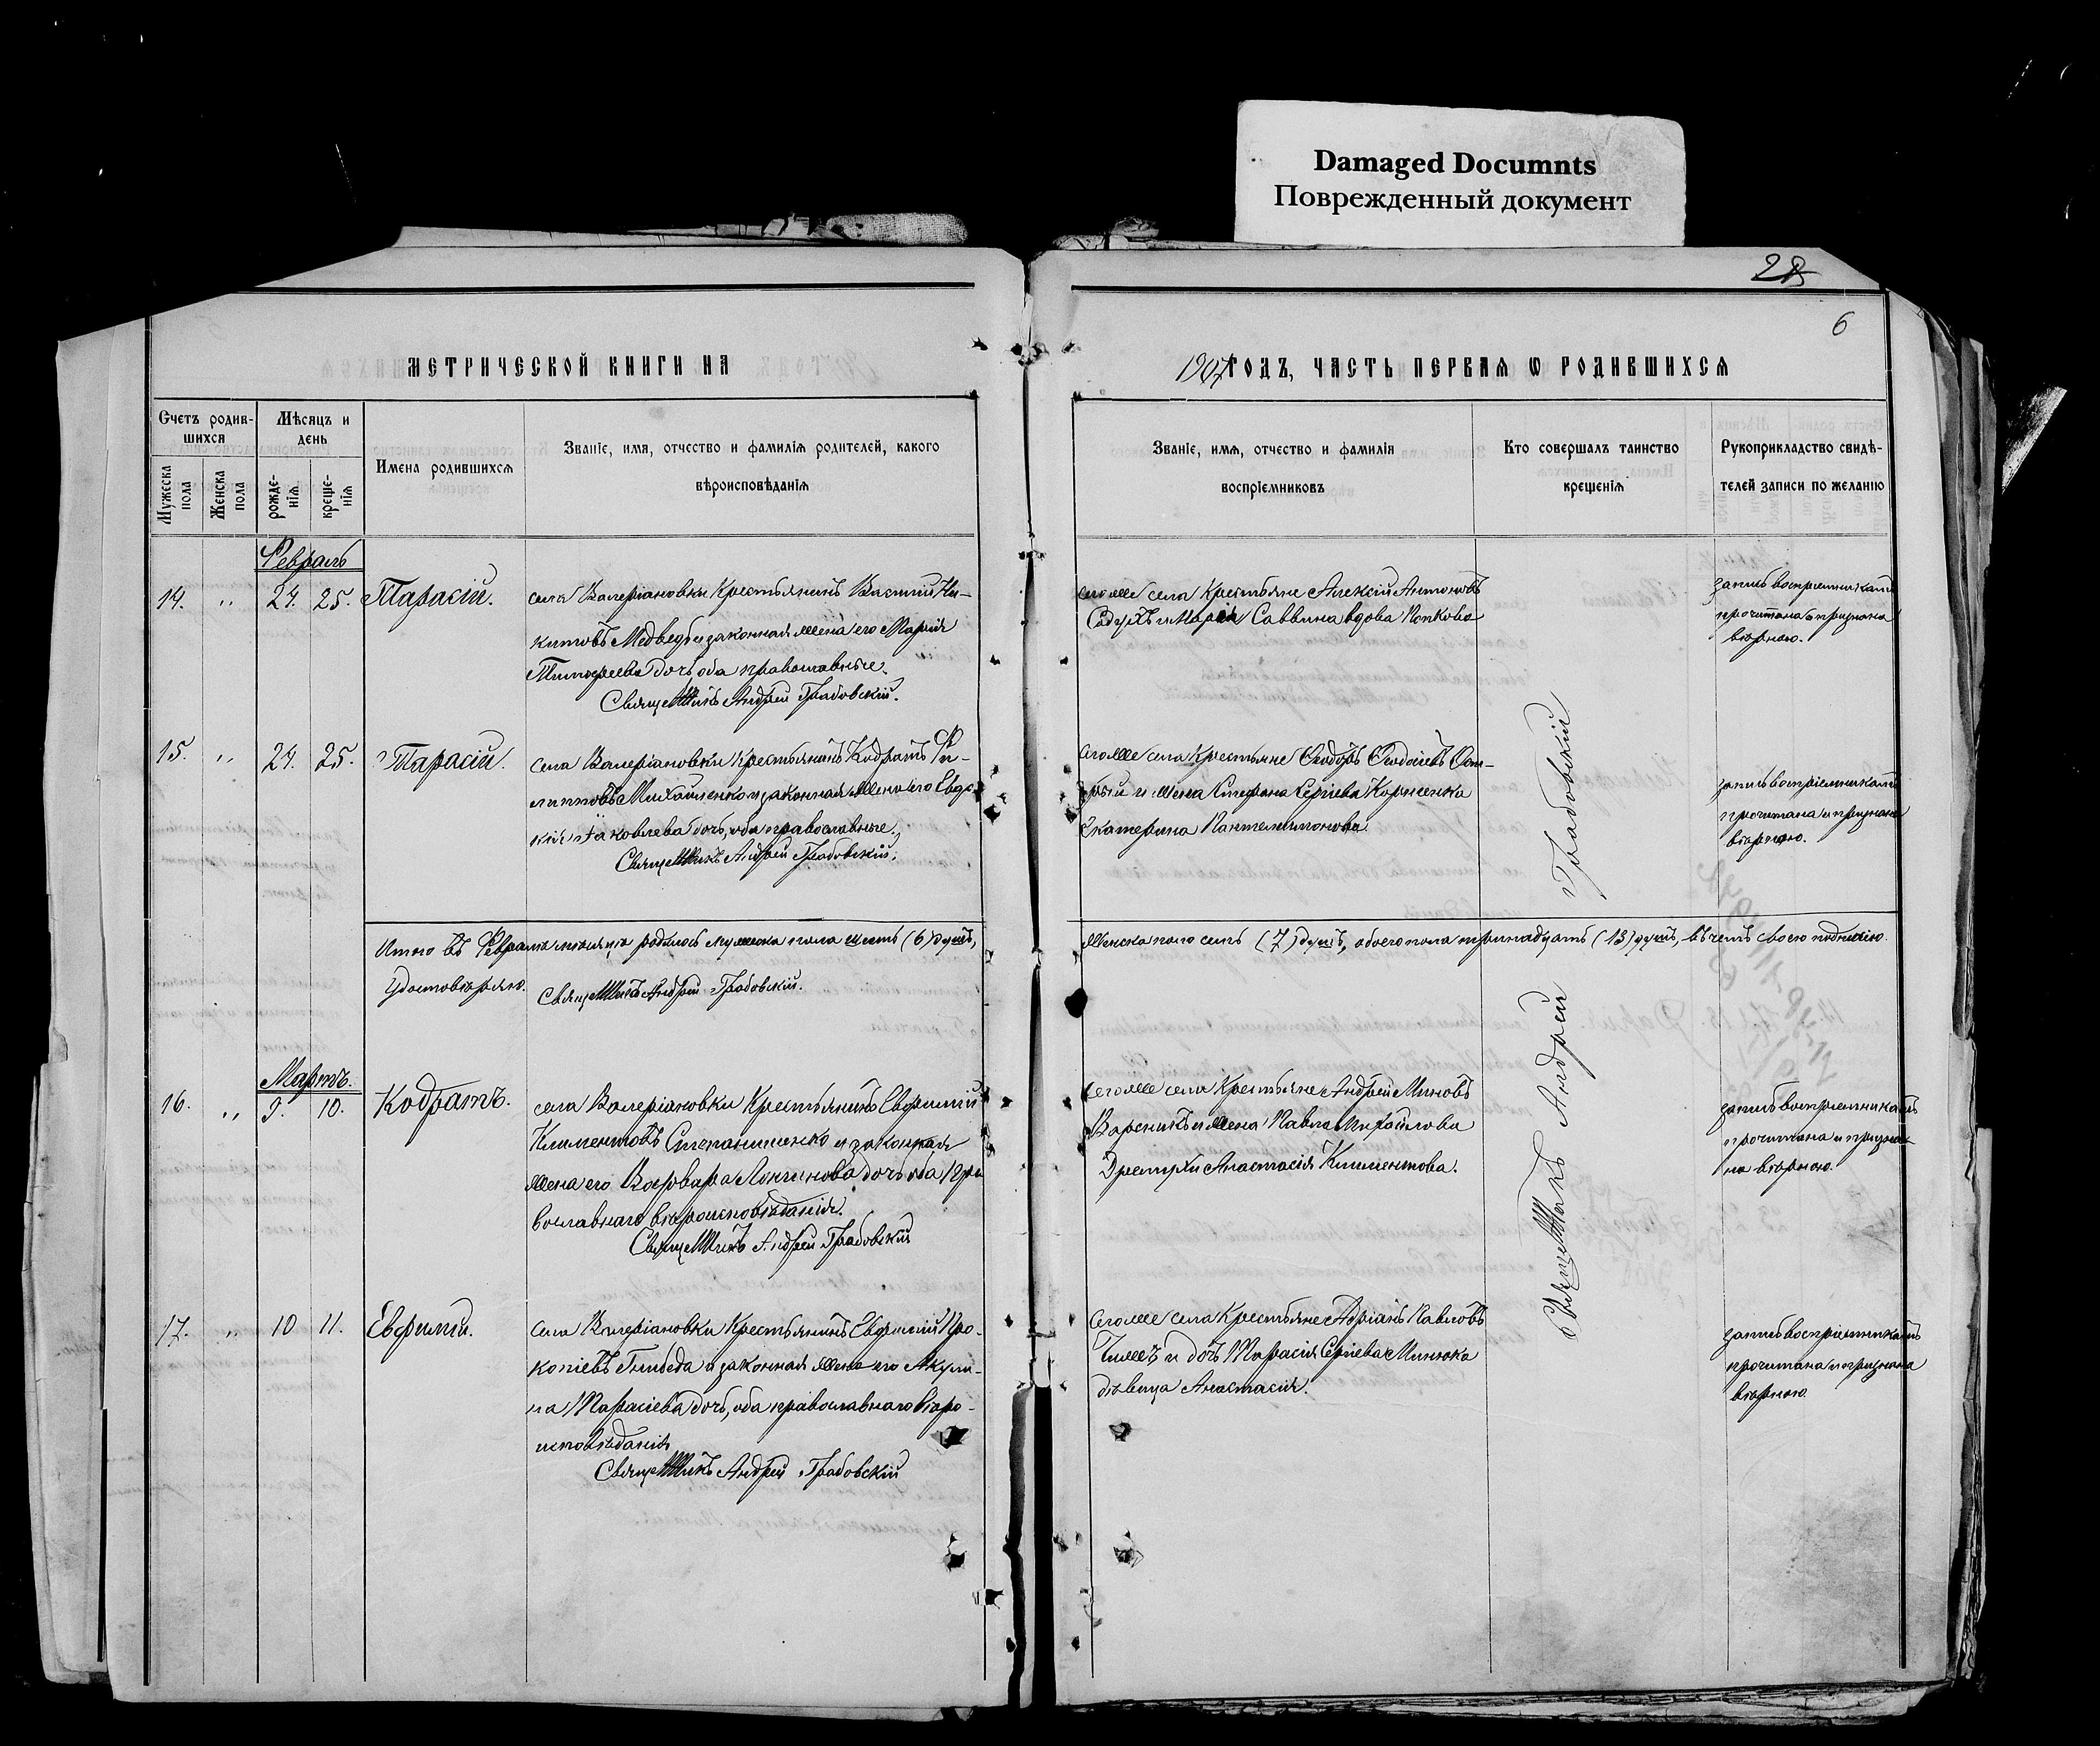 Damaged Documnts
Поврежденный документ
28
6
МЕТРИЧЕСКОЙ КНИГИ НА
1907 ГОДЪ, ЧАСТЬ ПЕРВАЯ Ѡ РОДИВШИХСЯ
Счетъ родив-
шихся
Мѣсяцъ и
день
Мужеска
пола
Женска
пола
рожде-
нія
креще-
нія
Имена родившихся
Званіе, имя, отчество и фамилія родителей, какого
вѣроисповѣданія
Званіе, имя, отчество и фамилія
воспріемниковъ
Кто совершалъ таинство
крещенія
Рукоприкладство свидѣ-
телей записи по желанію
Февраль
14. „ 24. 25. Тарасій.
села Валеріановки Крестьянинъ Василій Ни-
китовъ Медведь и законная жена его Марія
Тимофеева дочь оба православные.
Священникъ Андрей Грабовскій.
сего же села Крестьяне Алексій Антоновъ
и Марія Саввина вдова Попкова
запись воспріемникамъ
прочитана и признана
вѣрною.
15. „ 24. 25. Тарасій.
села Валеріановки Крестьянинъ Кодратъ Фи-
липповъ Михайленко и законная жена его Евдо-
кія Іаковлева дочь, оба православные.
Священникъ Андрей Грабовскій.
сего же села Крестьяне Ѳеодоръ
и жена Стефана Сергіева Корніенка
Екатерина Пантелеимонова
запись воспріемникамъ
прочитана и признана
вѣрною.
Итого въ Февралѣ мѣсяцѣ родилось мужеска пола шесть (6) душъ,
женска пола семь (7) душъ, обоего пола тринадцать (13) душъ, въ чемъ своею подписью
удостовѣряю. Священникъ Андрей Грабовскій.
Священникъ Андрей Грабовскій
Мартъ.
16. „ 9. 10. Кодратъ.
села Валеріановки Крестьянинъ Евфимій
Климентовъ Степаниченко и законная
жена его Варвара Логгинова дочь оба пра
вославнаго вѣроисповѣданія.
Священникъ Андрей Грабовскій
сего же села Крестьяне Андрей Миновъ
Вареникъ и жена Павла Михайлова
Анастасія Климентова.
запись воспріемникамъ
прочитана и призна-
на вѣрною.
17. „ 10 11. Евфимій.
села Валеріановки Крестьянинъ Евфимій Про-
копіевъ и законная жена его Акули-
на Тарасіева дочь, оба православнаго вѣро-
исповѣданія
Священникъ Андрей Грабовскій
сего же села Крестьяне Адріанъ Павловъ
Чижъ и дочь Тарасія Сергіева
дѣвица Анастасія.
запись воспріемникамъ
прочитана и признана
вѣрною